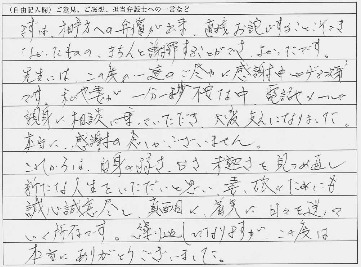 (自由記入欄)ご意見、ご感想、担当弁護士への一言など
まずは、相手方への弁償が出来、直接お詫びすることはできま
なかったものの、きちんと謝罪することができ、よかったです。
先生には、この度の一連のご尽力に感謝
です。私や妻が一分一秒 中、電話やメールで
親身に相談に乗っていただき、大変支えになりました。
本当に、感謝の念しかございません。
これからは、自身の弱さ、甘さ、未熟さを見つめ直し
新たな人生をいただいたと思い、妻、 ためにも
誠心誠意尽くし、真面目に、着実に日々を送って
いく所存です。繰り返しになりますが、この度は
本当にありがとうございました。